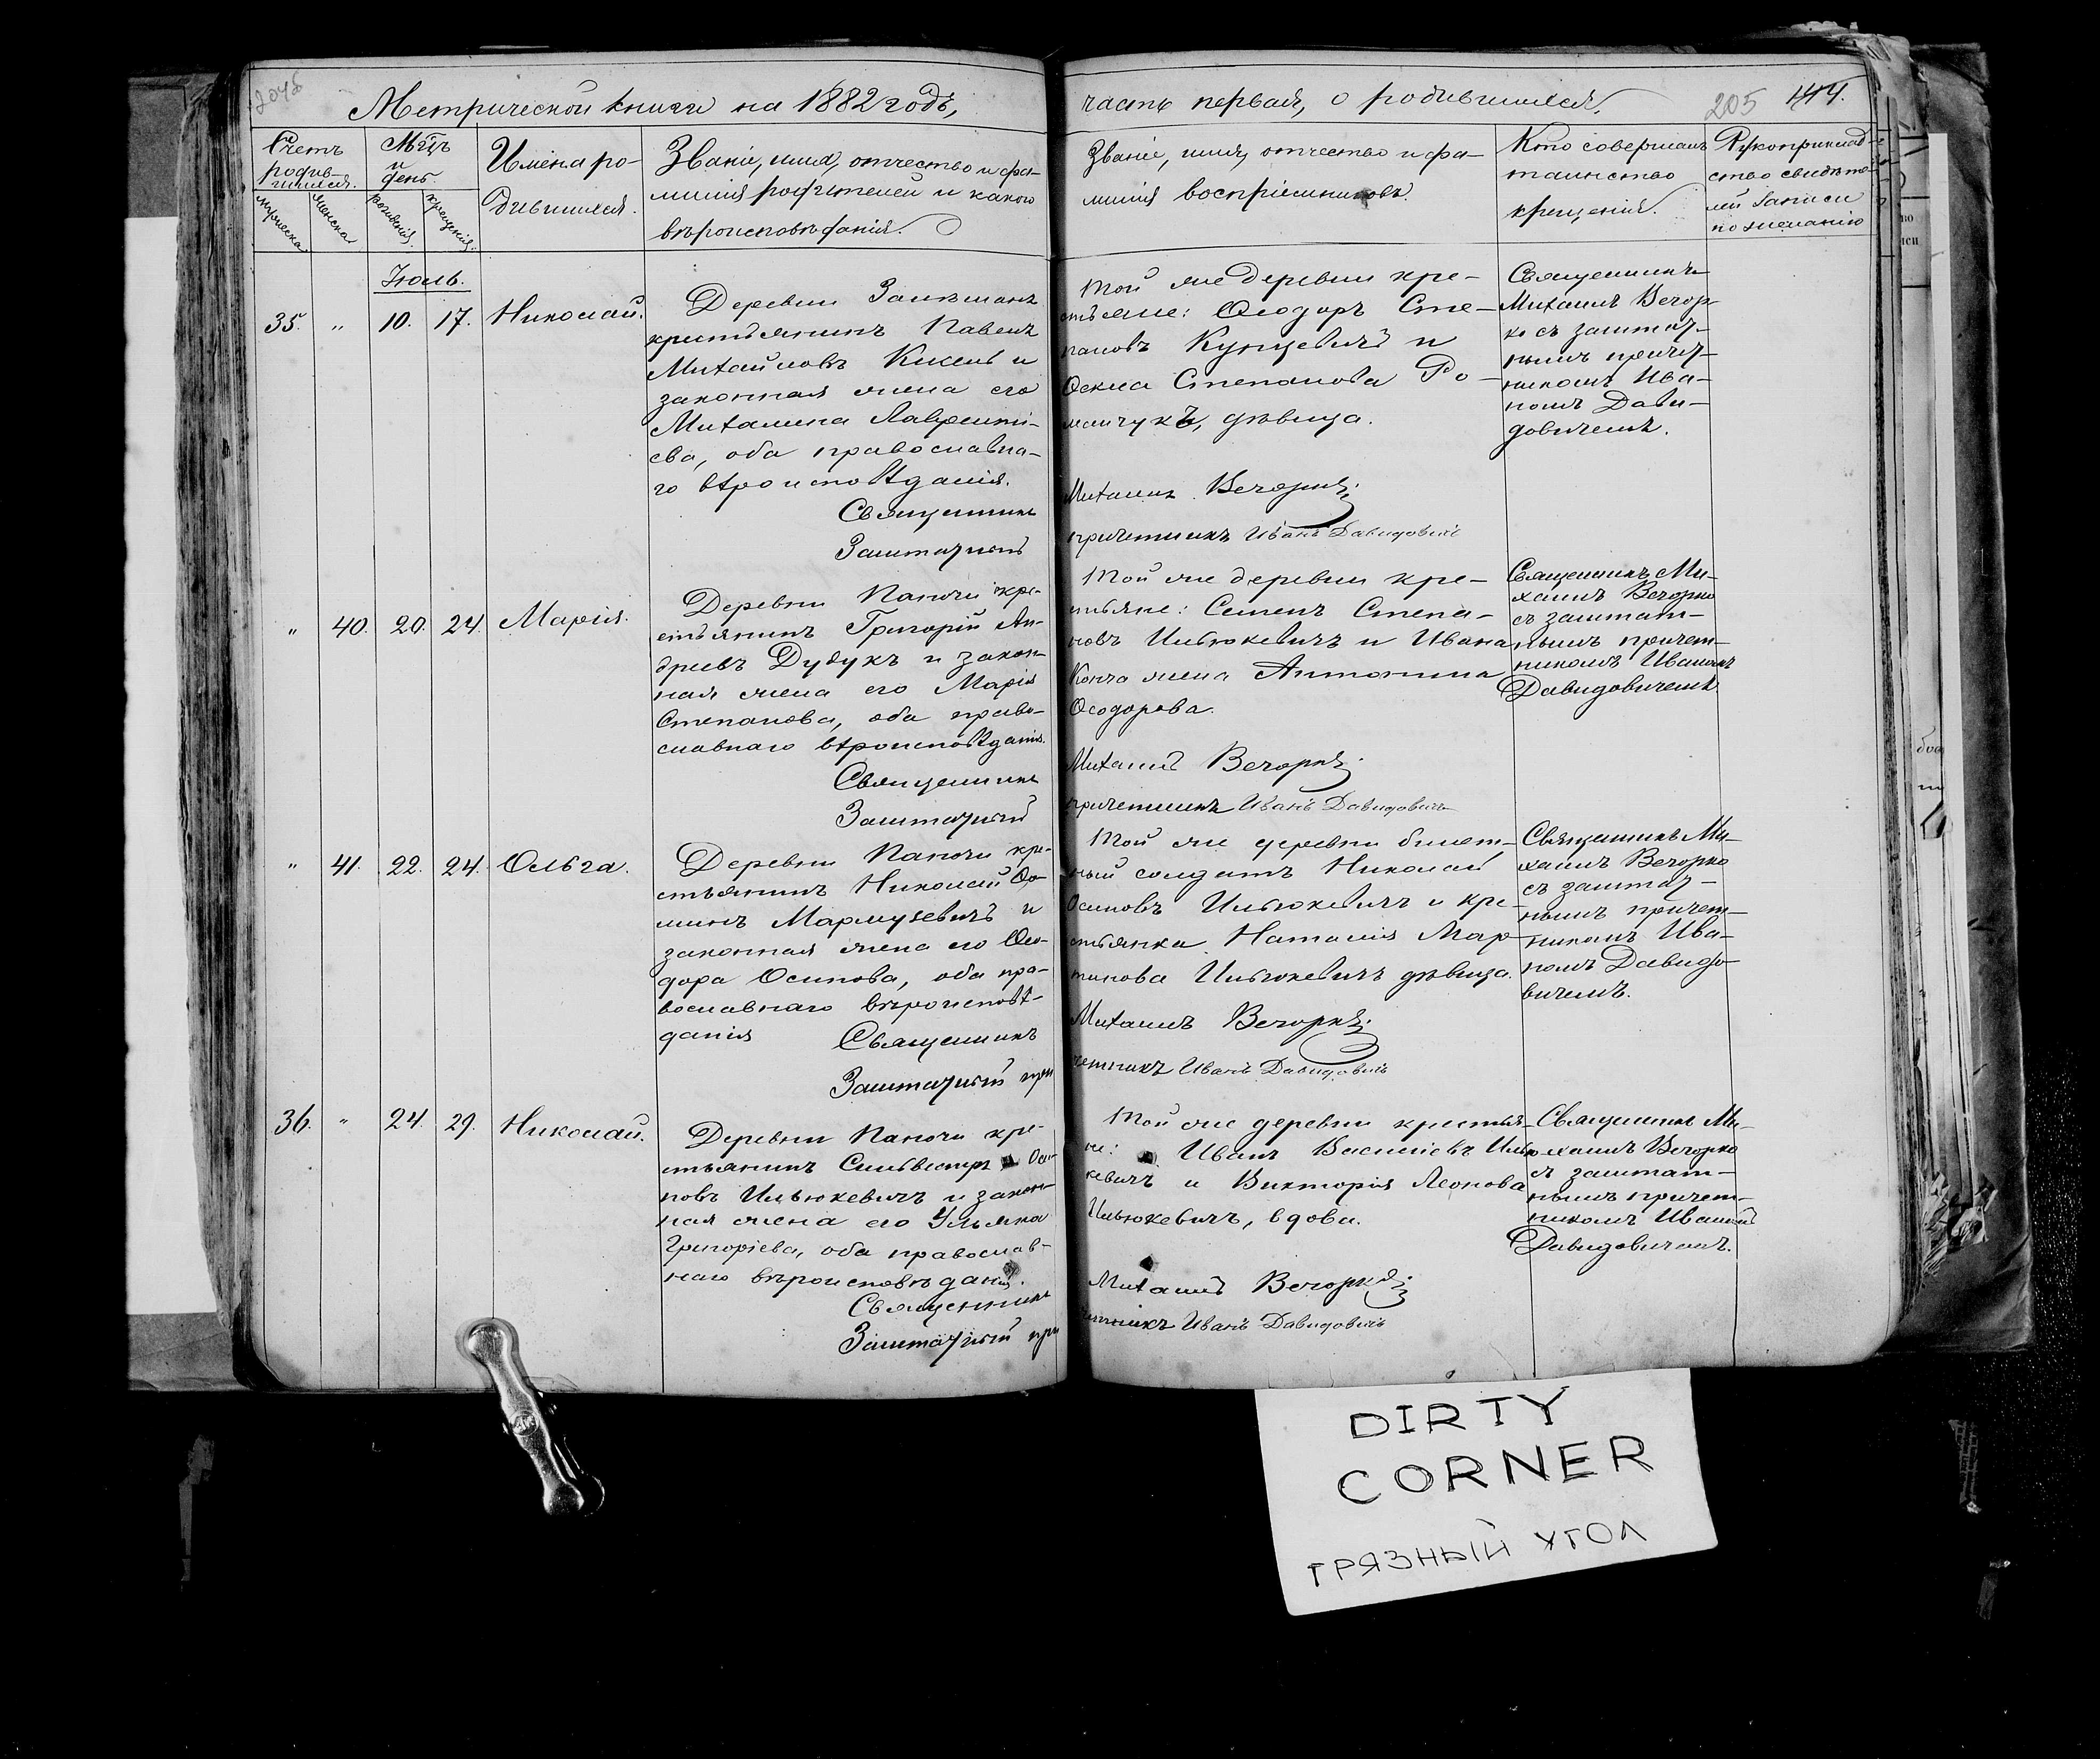 Метрической книги на 1882 годъ,
часть первая, о родившихся.
205
Счетъ родив-шихся.
Мцъ и день.
Имена ро-
дившихся.
Званіе, имя, отчество и фа-
милія родителей и какого
вѣроисповѣданія.
Званіе, имя, отчество и фа-
милія воспріемниковъ.
Кто совершалъ
таинство
крещенія.
Рукоприклад-
ство свидѣте-
лей записи
по желанію
мужеска
женска
рожденія.
крещенія.
Іюль.
35. " 10. 17. Николай.
Деревни
крестьянинъ Павелъ
Михайловъ Кисель и
законная жена его
Михалина Лаврентіе-
ва, оба православна-
го вѣроисповѣданія.
Священникъ
Заштатный
Той же деревни кре-
стьяне: Ѳеодоръ Сте-
пановъ Кунцевичъ и
Степанова Ро-
манчукъ, дѣвица.
Михаилъ Вечорко
причетникъ Иванъ Давидовичъ
Священникъ
Михаилъ Вечор-
ко съ заштат-
нымъ причет-
никомъ Ива-
номъ Дави-
довичемъ.
" 40. 20. 24. Марія.
Деревни кре-
стьянинъ Григорій Ан-
дреевъ Дудукъ и закон-
ная жена его Марія
Степанова, оба право-
славнаго вѣроисповѣданія.
Священникъ
Заштатный
Той же деревни кре-
стьяне: Семенъ Степа-
новъ Ильюкевичъ и Ивана
жена Антонина
Ѳеодорова.
Михаилъ Вечорко
причетникъ Иванъ Давидовичъ
Священникъ Ми-
хаилъ Вечорко
съ заштат-
нымъ причет-
никомъ Иваномъ
Давидовичемъ
" 41. 22. 24. Ольга.
Деревни кре-
стьянинъ Николай Ѳо-
минъ и
законная жена его Ѳео-
дора Осипова, оба пра-
вославнаго вѣроисповѣ-
данія Священникъ
Заштатный при
Той же деревни билет-
ный солдатъ Николай
Осиповъ Ильюкевичъ и кре-
стьянка Наталія Мар-
тинова Ильюкевичъ дѣвица.
Михаилъ Вечорко
четникъ Иванъ Давидовичъ
Священникъ Ми-
хаилъ Вечорко
съ заштат-
нымъ причет-
никомъ Ива-
номъ Давидо-
вичемъ.
36. " 24. 29. Николай.
Деревни кре-
стьянинъ Сильвестръ Оси-
повъ Ильюкевичъ и закон-
ная жена его Ульяна
Григоріева, оба православ-
наго вѣроисповѣданія.
Священникъ
Заштатный при
Той же деревни крестья-
не: Иванъ Василіевъ Илью-
кевичъ и Викторія Леонова
Ильюкевичъ, вдова.
Михаилъ Вечорко
четникъ Иванъ Давидовичъ
Священникъ Ми-
хаилъ Вечорко
съ заштат-
нымъ причет-
никомъ Иваномъ
Давидовичемъ.
DIRTY
CORNER
ГРЯЗНЫЙ УГОЛ